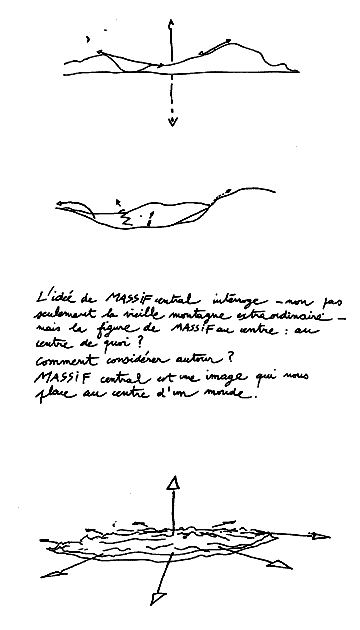 L'idée de MASSIF central interroge _ non pas
seulement la vieille montagne extraordinaire _
mais la figure de MASSIF au centre : au
centre de quoi ?
comment considérer autour ?
MASSIF central est une image qui nous
place au centre d'un monde.